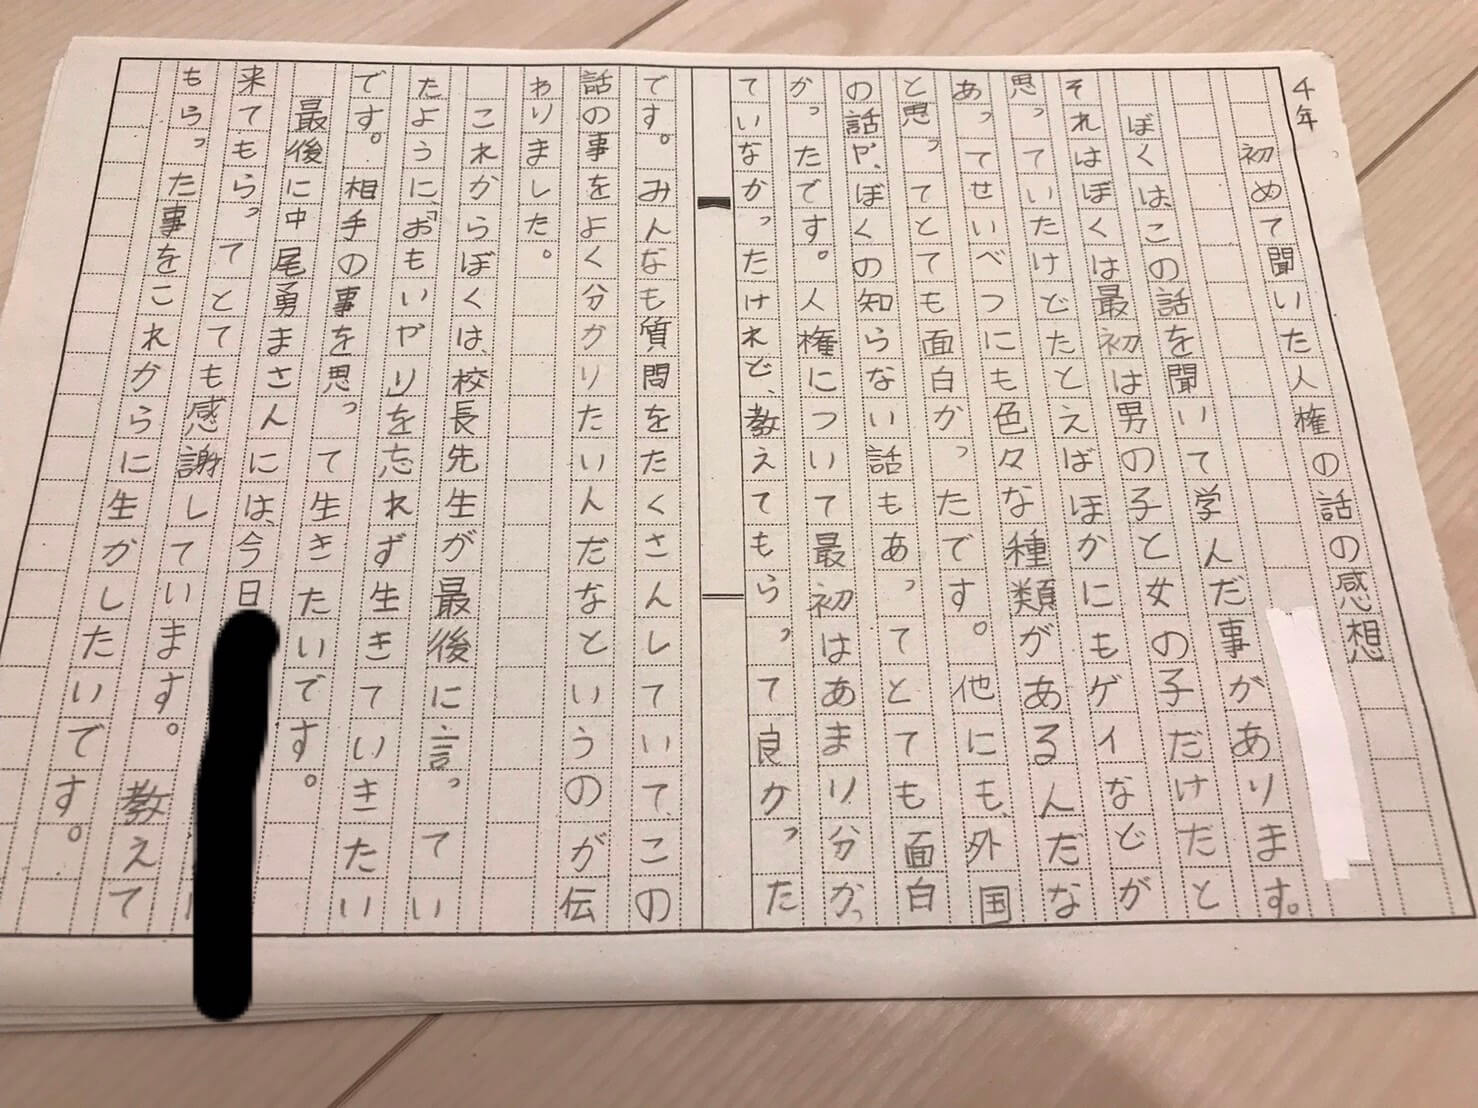 4年
初めて聞いた人権の話の感想
ぼくは、この話を聞いて学んだ事があります。
それはぼくは最初は男の子と女の子だけだと
思っていたけどたとえばほかにもゲイなどが
あってせいべつにも色々な種類があるんだな
と思ってとても面白かったです。他にも、外国
の話や、ぼくの知らない話もあってとても面白
かったです。人権について最初はあまり分かっ
ていなかったけれど、教えてもらって良かった
です。みんなも質問をたくさんしていて、この
話の事をよく分かりたいんだなというのが伝
わりました。
これからぼくは、校長先生が最後に言ってい
たように、「おもいやり」を忘れず生きていきたい
です。相手の事を思って生きたいです。
最後に中尾勇まさんには、今日
来てもらってとても感謝しています。教えて
もらった事をこれからに生かしたいです。